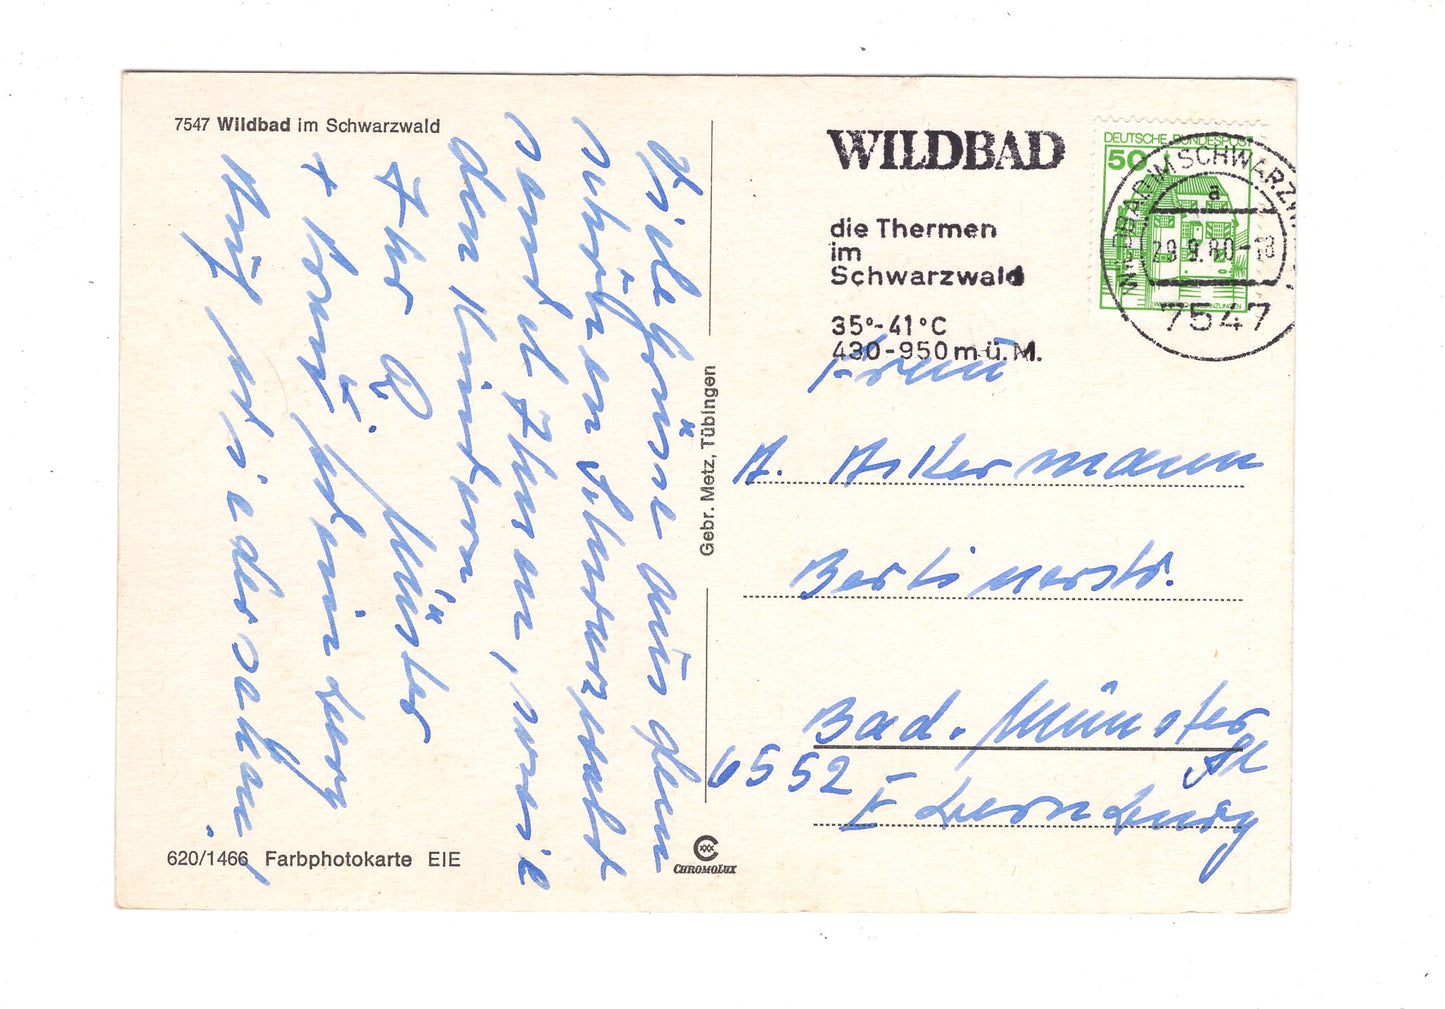 7547 Wildbad im Schwarzwald
Viele Grüße aus dem
schönen Schwarzwald
sendet Ihnen, sowie
den Kindern
Ihr
+ Frau
Auf Wiedersehen!
620/1466 Farbphotokarte EIE
Gebr. Metz, Tübingen
CHROMOLUX
WILDBAD
die Thermen
im
Schwarzwald
35°-41°C
430-950 m ü. M.
DEUTSCHE BUNDESPOST
50
WILDBAD IM SCHWARZW
a
29.9.80-18
7547
Frau
A. Askermann
Berlinerstr.
Bad. Münster
6552
Ebernburg